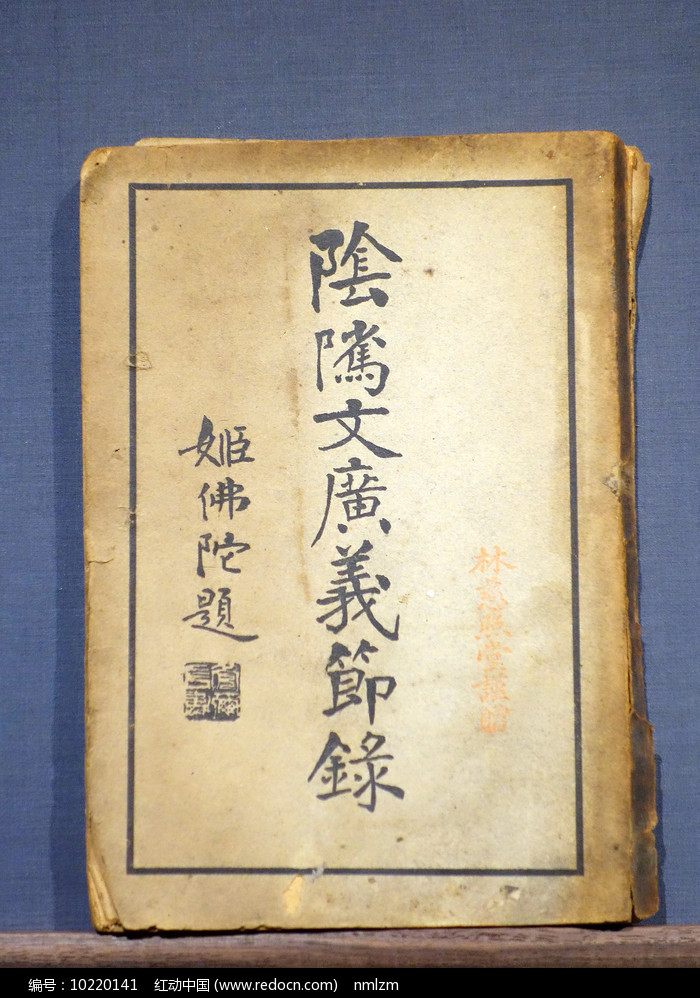 陰隲文廣義節錄
姬佛陀題
编号：10220141 红动中国 (www.redocn.com) nmlzm